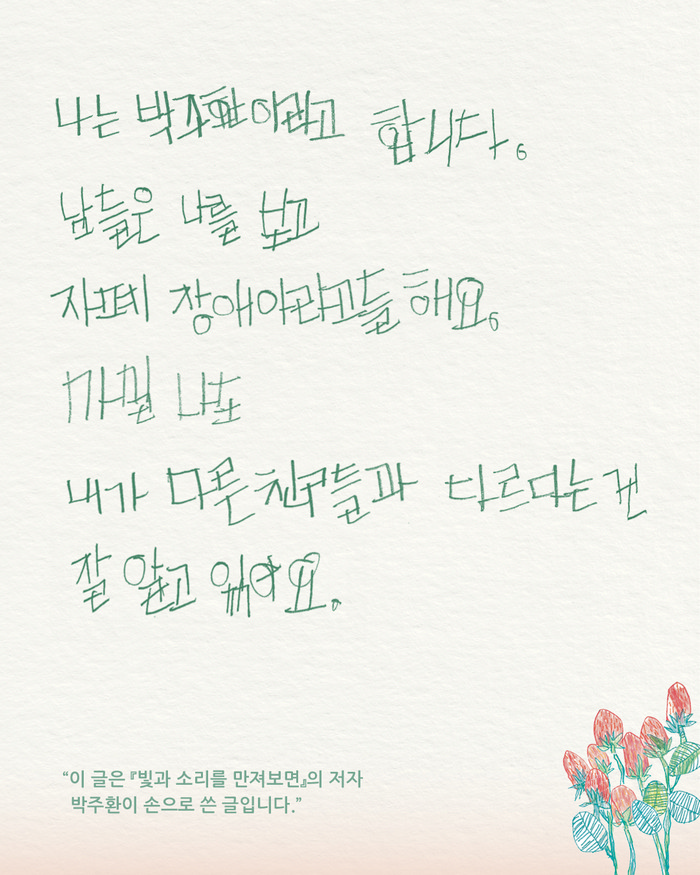 나는 박주환이라고 합니다.
남들은 나를 보고
자폐 장애아라고들 해요.
하긴 나도
내가 다른 친구들과 다르다는 건
잘 알고 있어요.
“이 글은 『빛과 소리를 만져보면』의 저자
박주환이 손으로 쓴 글입니다.”